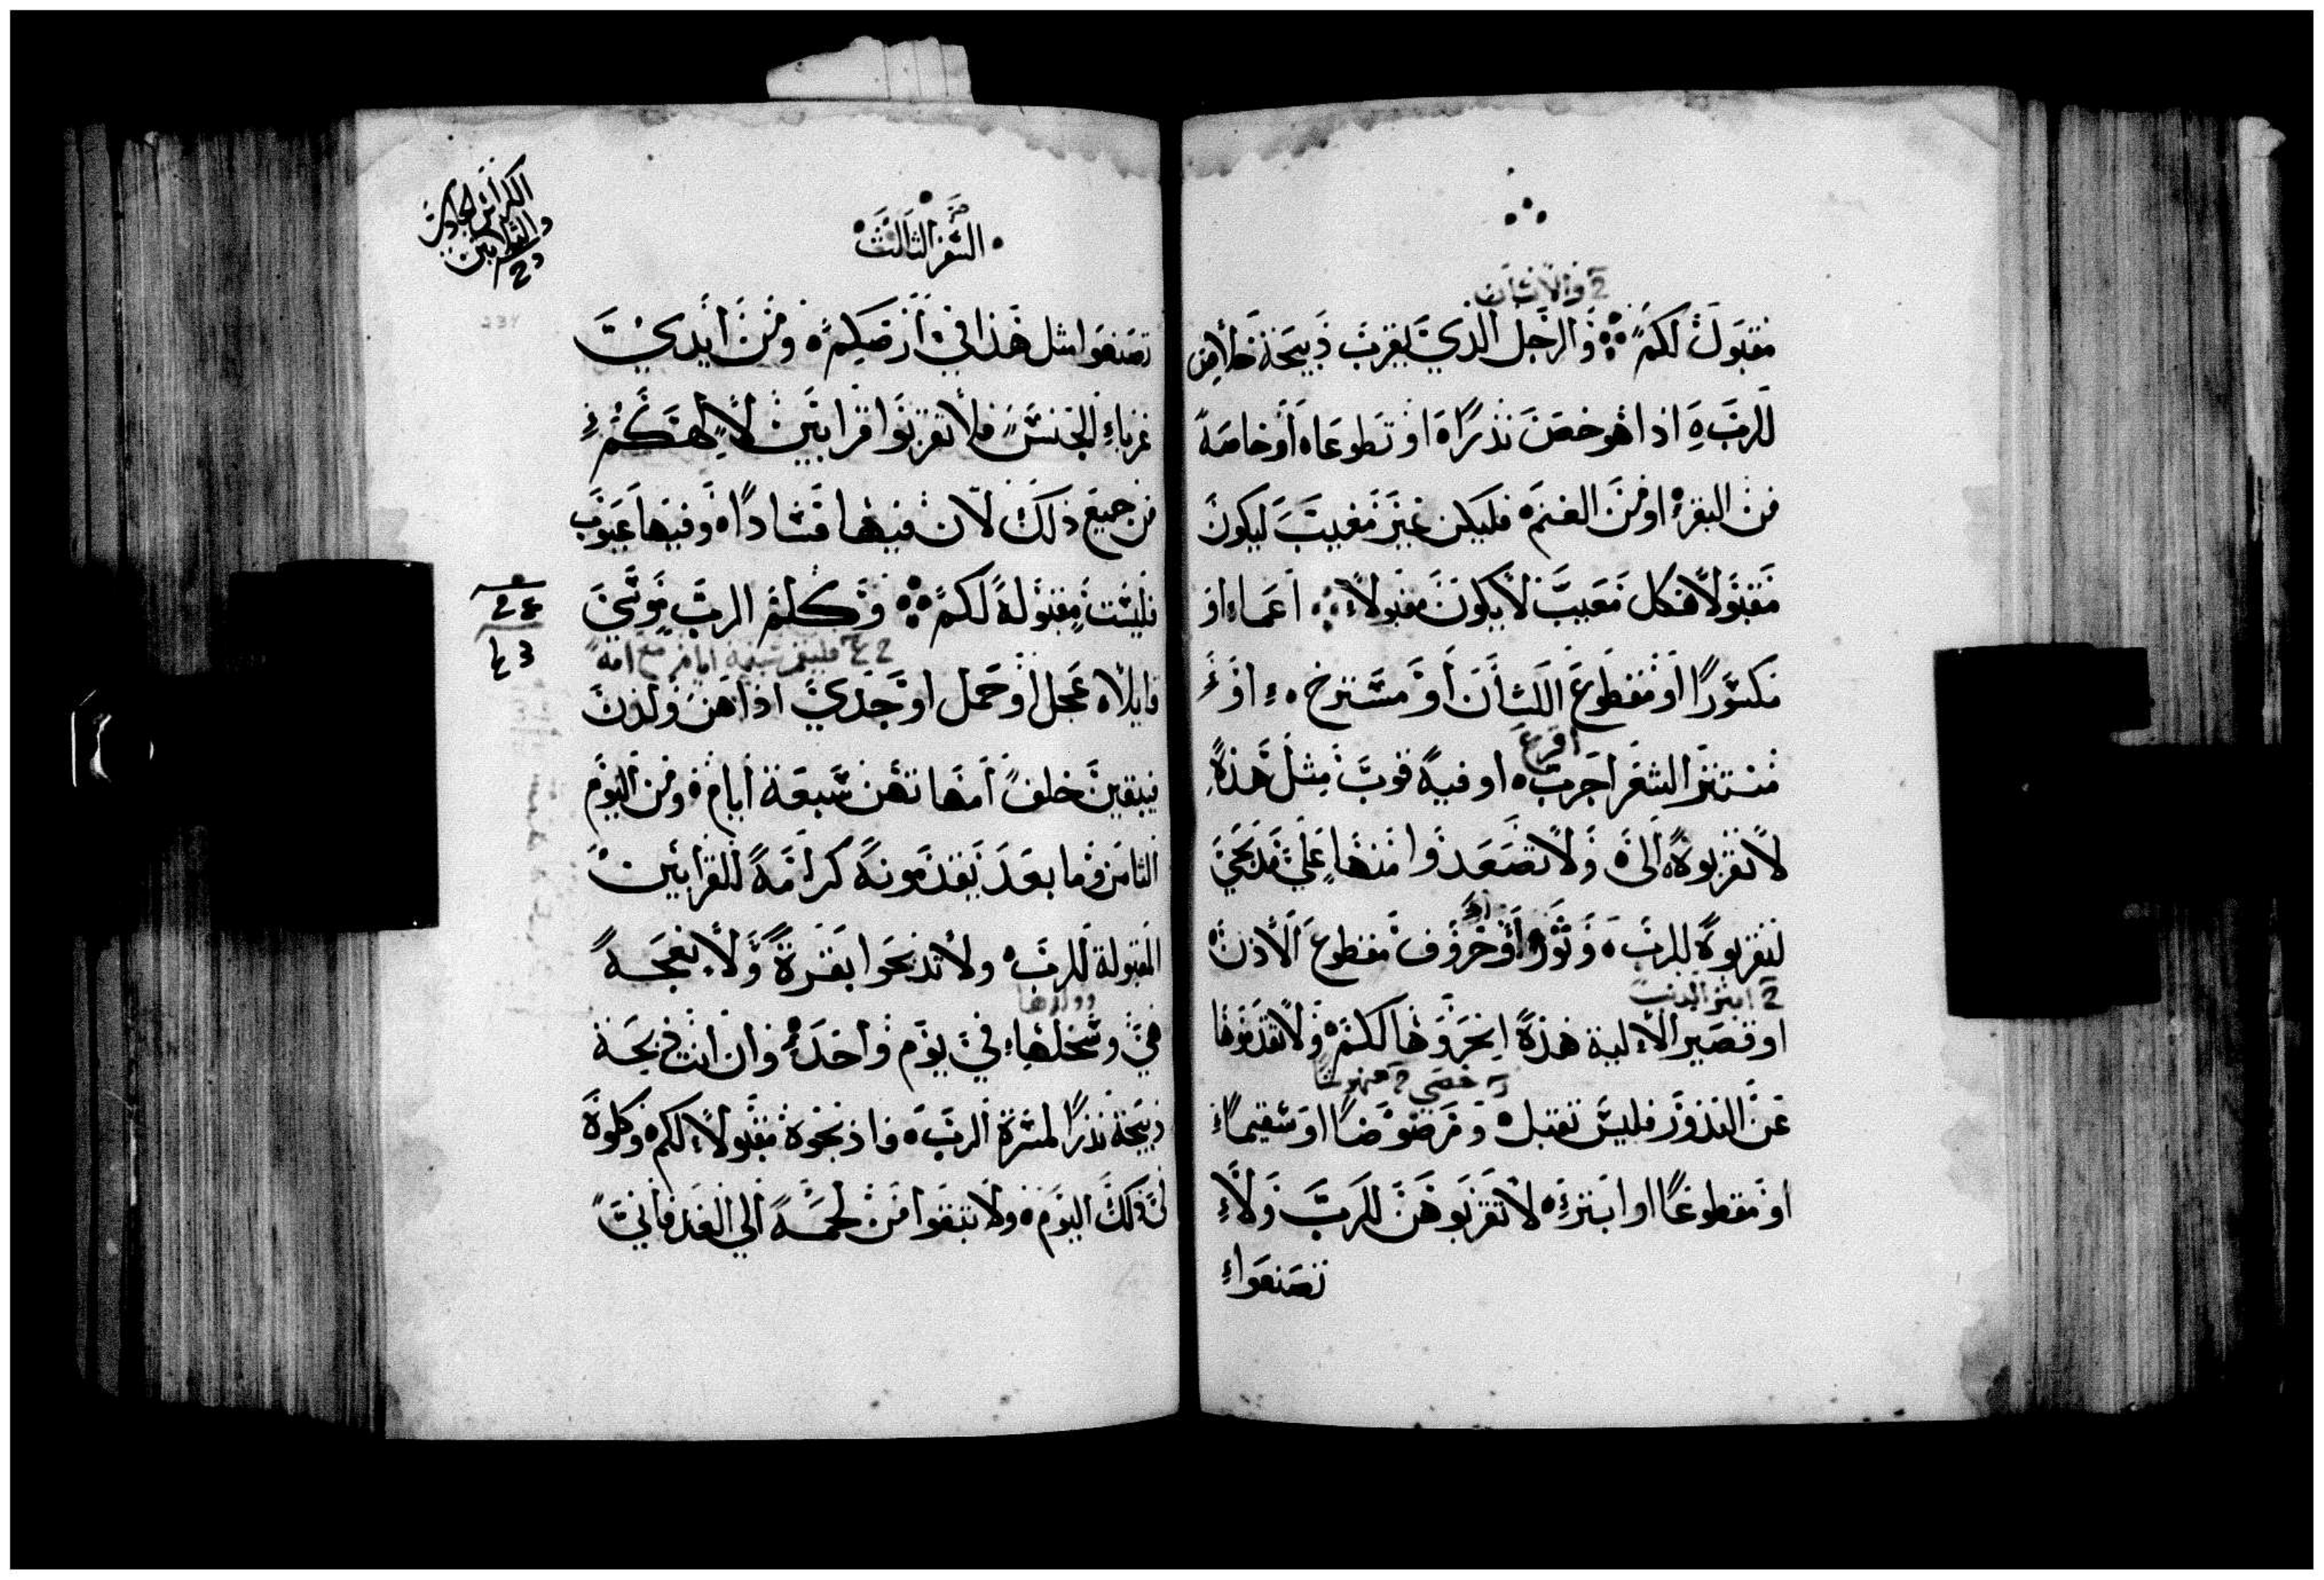 والانسان
مقبول لكم والرجل الذي يقرب ذبيحة خلاص
للرب اذا هو خص نذرا او تطوعا او خاصة
من البقر او من الغنم فليكن غير معيب ليكون
مقبولا فكل معيب لا يكون مقبولا اعما او
مكسورا او مقطوع اللسان او مسترخ او
اقرع
منتتر الشعر اجرب او فيه قوب مثل هذه
لا تقربوه الى ولا تصعدوا منها على مذبحي
لتقربوه للرب وثور او خروف مقطوع الاذن
ابتر الذنب
او قصير الالية هذه انحروها لكم ولا تقدموها
خصي
عن النذور فليس تقبل ومرضوضا او سقيما
او مقطوعا او ابتر لا تقربوهن للرب ولا
تصنعوا
السفر الثالث
الكراس الحادي
والثلاثين
تصنعوا مثل هذا في ارضكم ومن ايدي
غرباء الجنس فلا تقربوا قرابين لالهكم
من جميع ذلك لان فيها فسادا وفيها عيوب
فليست مقبولة لكم وكلم الرب موسى
فليقم سبعة ايام مع امه
قايلا عجل او حمل او جدي اذا هن ولدن
فيبقين خلف امهاتهن سبعة ايام ومن اليوم
الثامن وما بعد يقدمونه كرامة للقرابين
المقبولة للرب ولا تذبحوا بقرة ولا نعجة
وولدها
هي وسخلها في يوم واحد وان انت ذبحة
ذبيحة نذرا لمسرة الرب فاذبحوه مقبولا لكم وكلوه
في ذلك اليوم ولا تبقوا من لحمه الى الغد فاني